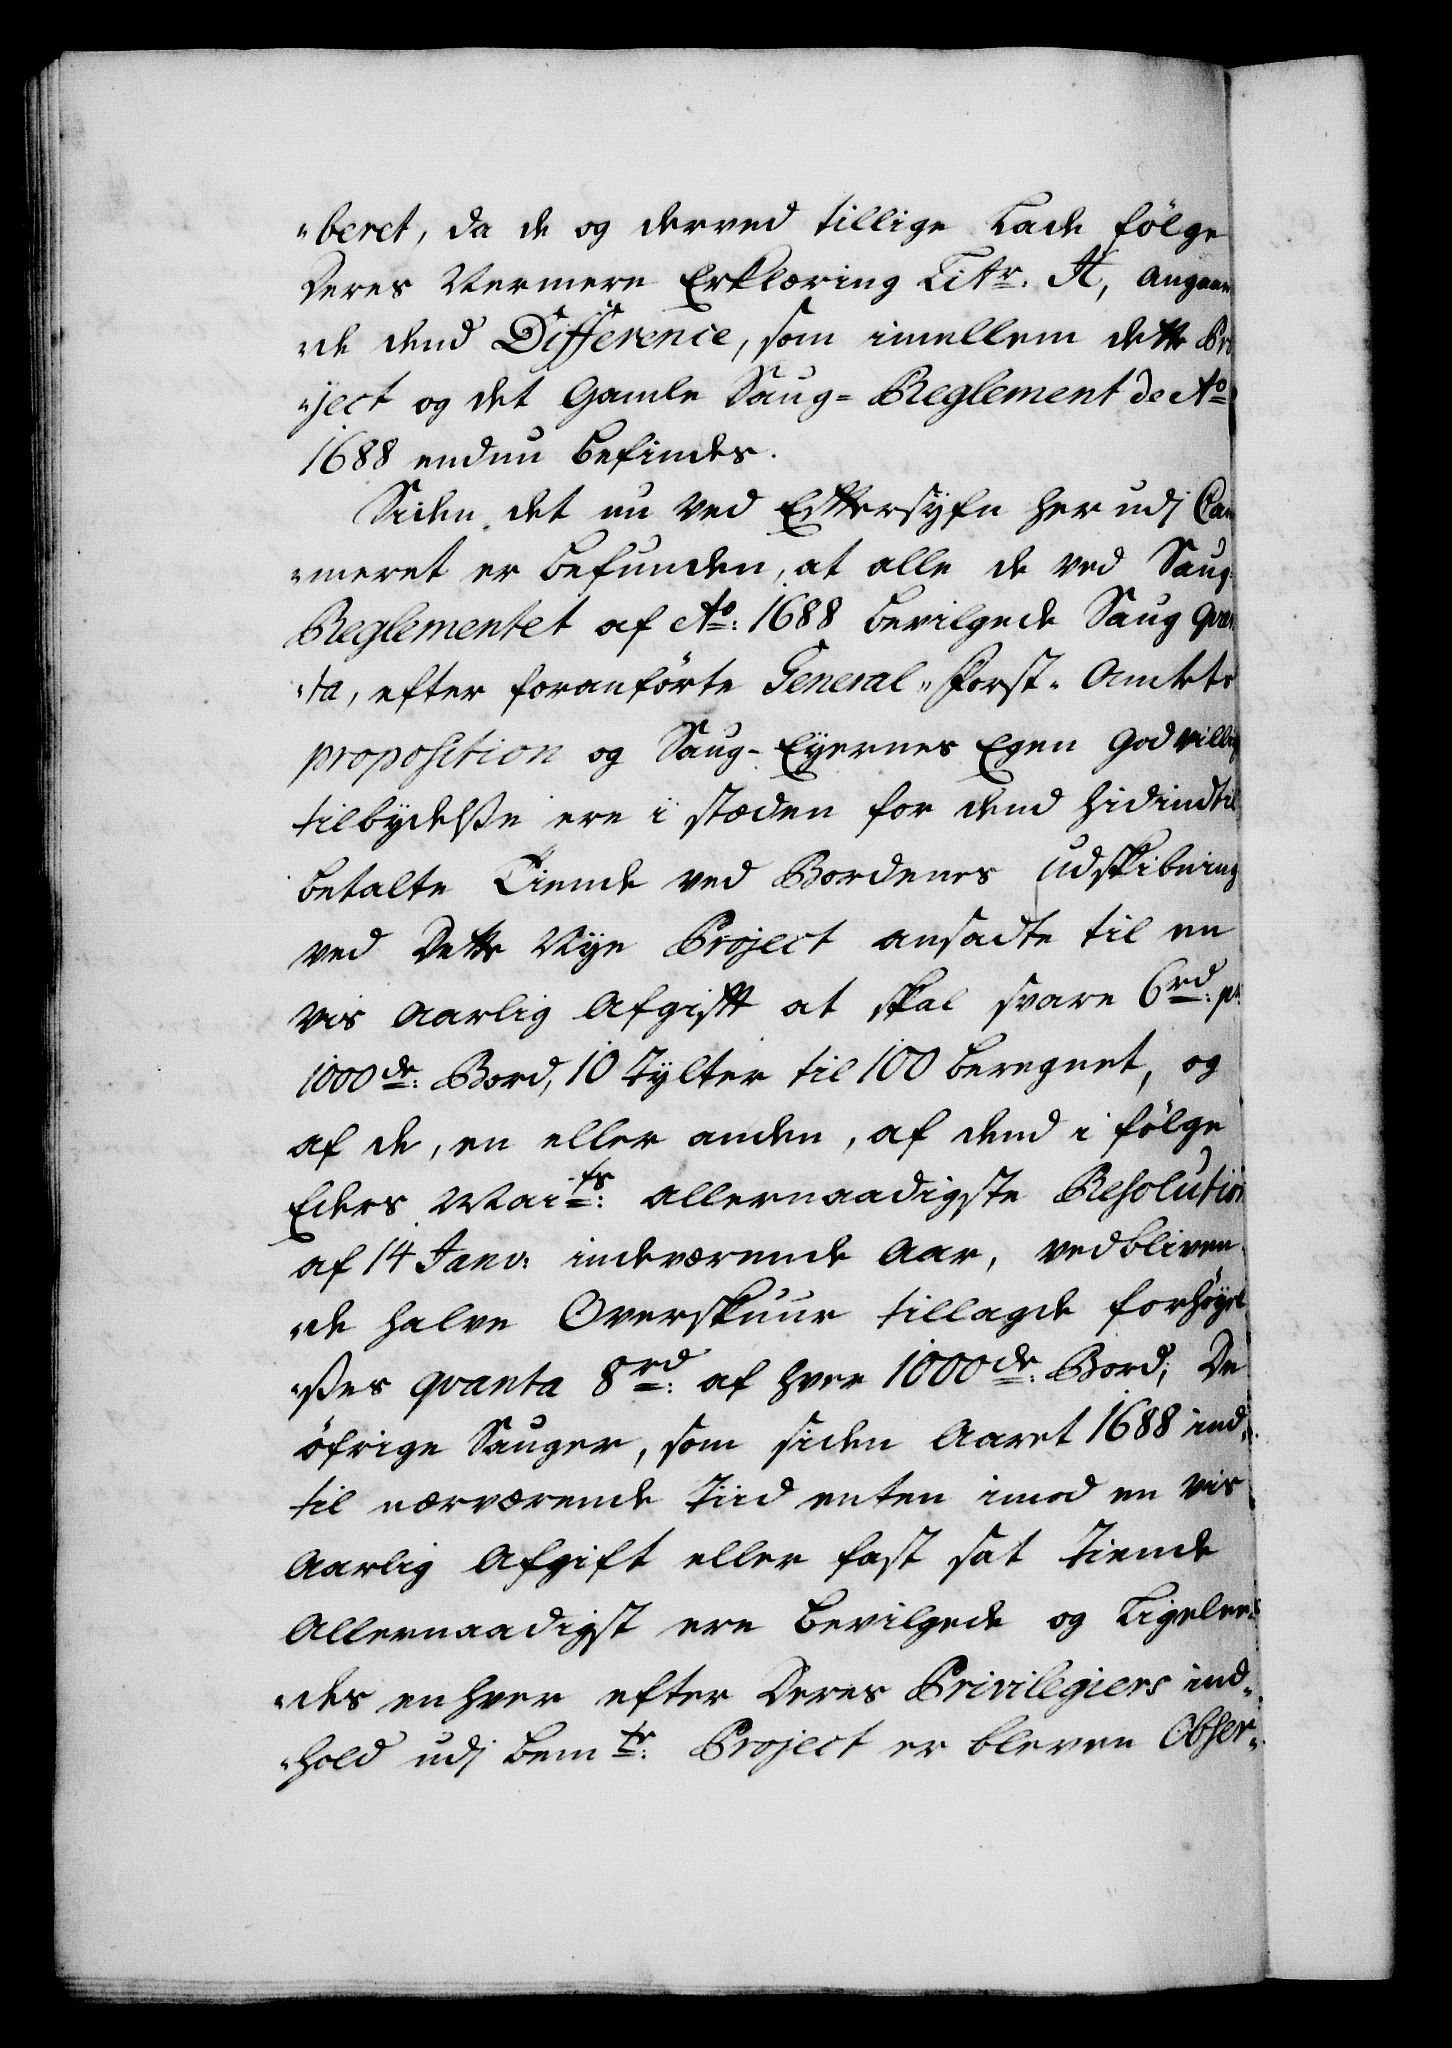 "beret, da de og derved tillige Lade følge
Deres Nermere Erklæring Litr. A, angaaen
"de dend Difference, som imellem dette Pro
"ject og det Gamle Saug= Reglement de Ao
1688 endnu befindes.
Siden det nu ved Efftersyfn her udj Cam
"meret er befunden, at alle de ved Saug-
Reglementet af Ao: 1688 bevilgede Saug qvan
"ta, efter foranførte General"Forst"Amtets
proposition og Saug-Eyernes Egen Godvillig
tilbydelße ere i stæden for dend hidindtil
betalte Tiende ved Bordenes Udskibning
ved Dette Nye Project ansadte til en
vis Aarlig Afgifft at skal svare 6 rd: pr
1000de: Bord, 10 Tylter til 100 beregnet, og
af de, en eller anden, af dend i følge
Eders Maits: allernaadigste Resolution
af 14 Janv: indeværende Aar, vedbliven
"de halve Overskuur tillagde forhøyel
"ßes qvanta 8rd: af hver 1000de: Bord; De
øfrige Sauger, som siden Aaret 1688 ind"
til nærværende Tiid enten imod en vis
Aarlig Afgift eller fast sat Tiende
Allernaadigst ere bevilgede og Ligelee"
"des enhver efter Deres Privilegiers ind"
"hold udj bemte: Project er bleven Obser"